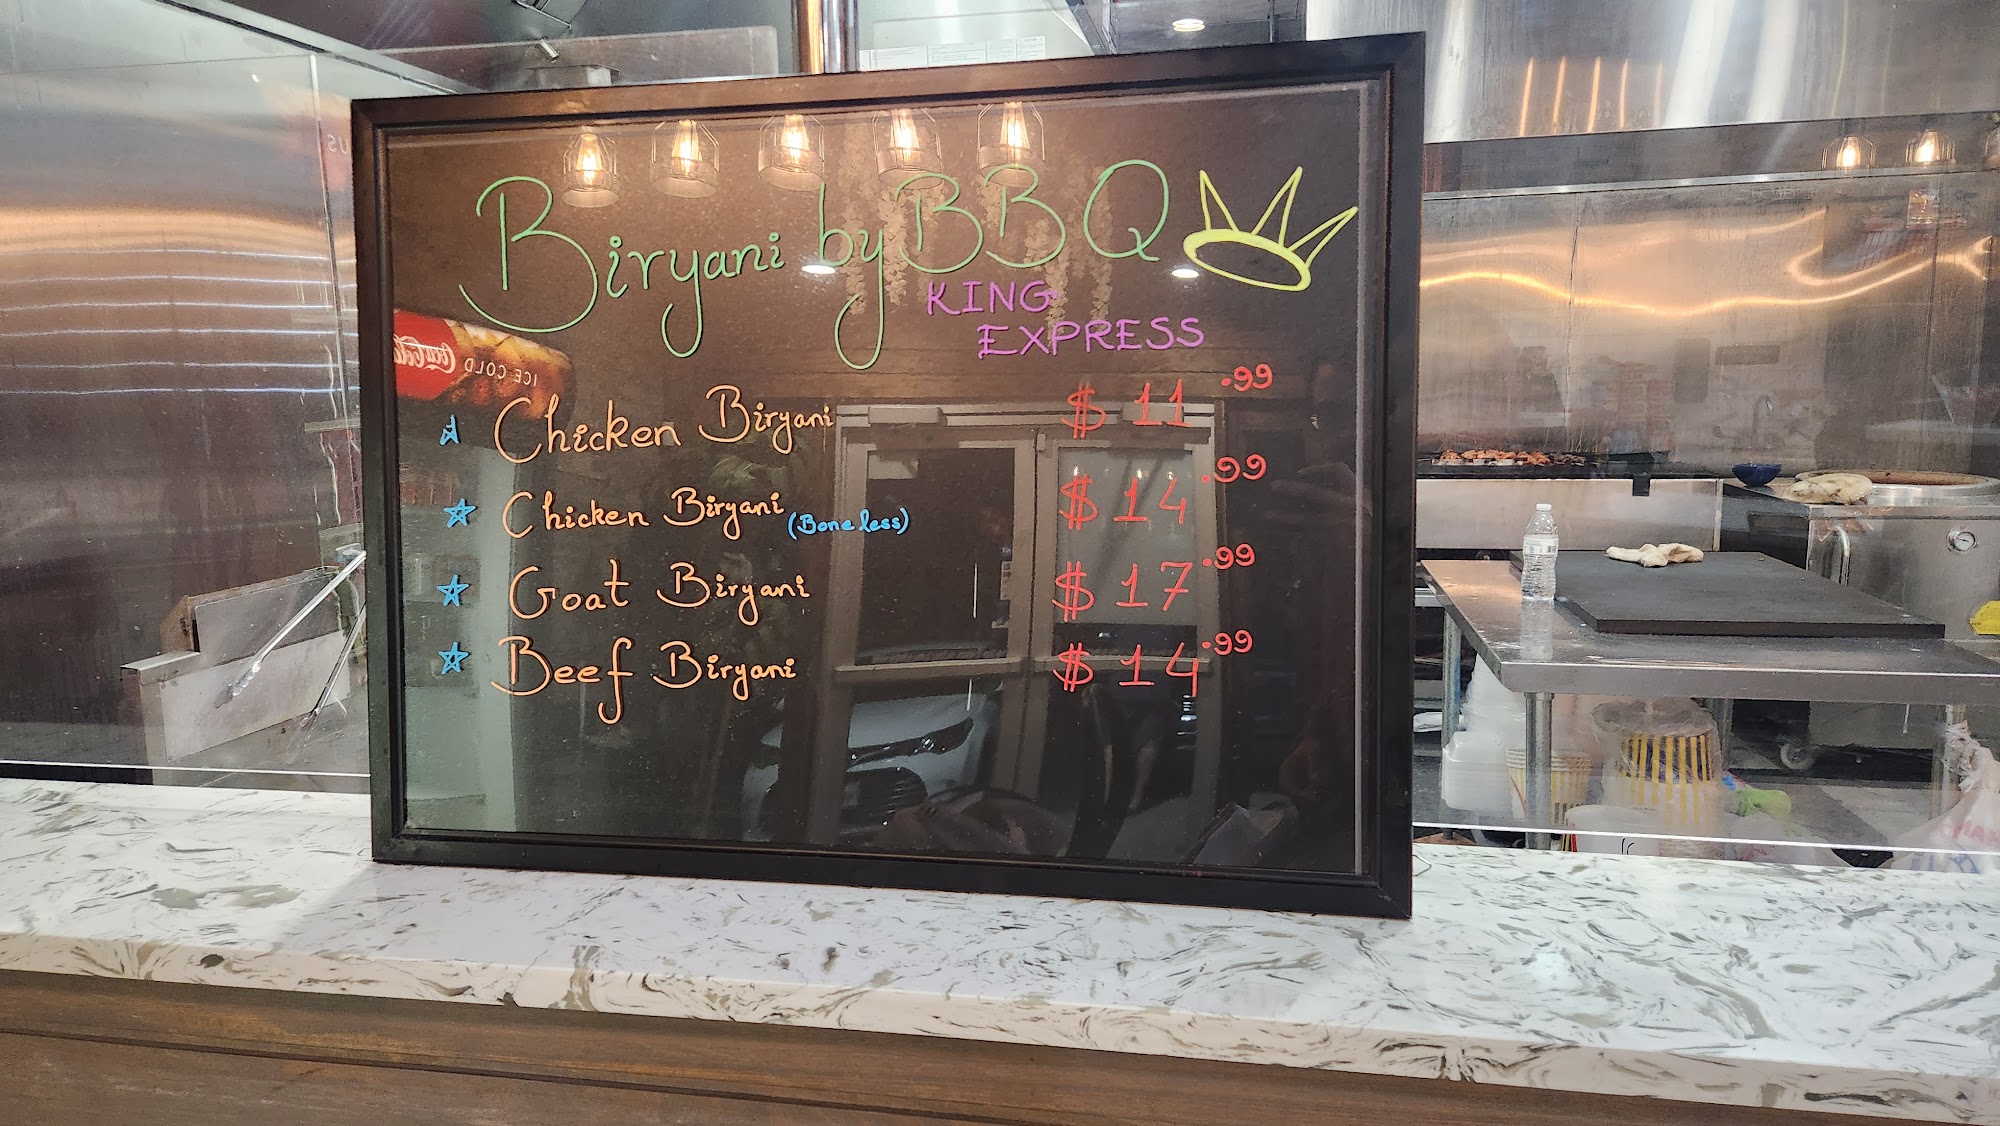 Biryani by BBQ
KING
EXPRESS
Chicken Biryani $ 11.99
Chicken Biryani (Boneless) $ 14.99
Goat Biryani $ 17.99
Beef Biryani $ 14.99
Coca-Cola
ICE COLD